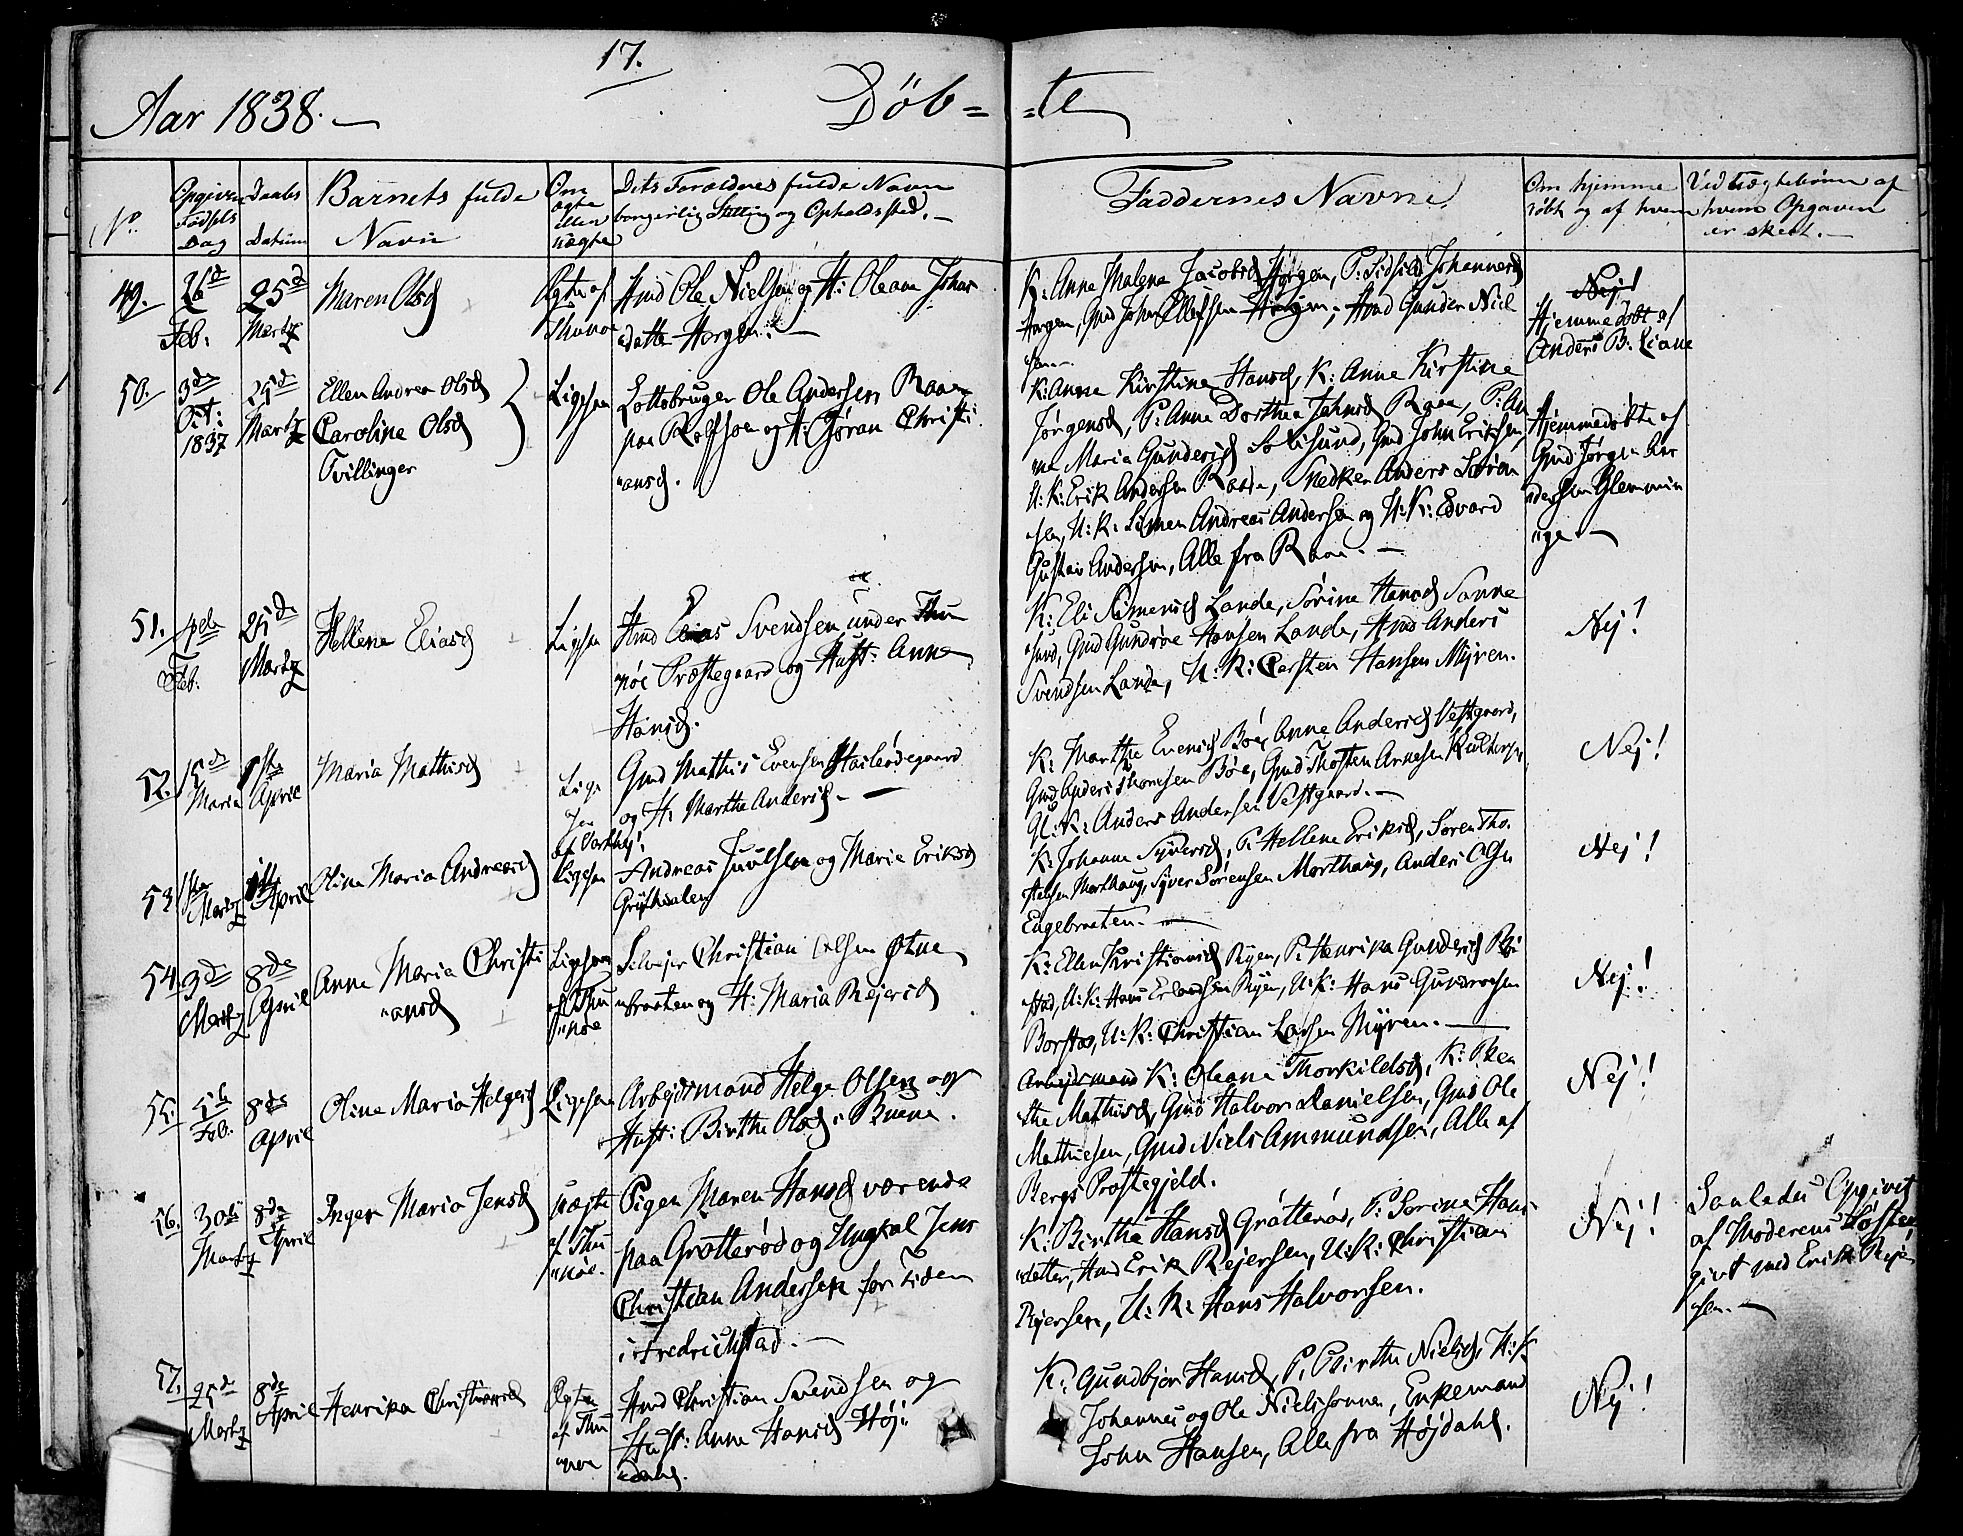 17.
Aar 1838.
Døb=
=te
No.
Opgiven
Fødsels
Dag
Daabs
Datum
Barnets fulde
Navn
Om
ægte
eller
uægte
Dets Forældres fulde Navn
borgerlig Stilling og Opholdssted.
Faddernes Navne
Om hjemme
døbt og af hvem
Ved uægtebørn af
hvem Opgaven
er skeet.
49.
26d
Feb:
25d
Martz
Maren Olsd
Ægte af
Thunøe
Hmd Ole Nielsen og H: Oleane Johns
datter Horgen.
K: Anne Malena Jacobsd Horgen, P: Sidsel Johannesd
Horgen, Gmd John Ellefsen Horgen, Hmd Gunder Niel
sen
Nej!
Hjemmedøbt af
Anders B. Liane
50.
3de
Oct:
1837
25de
Martz
Ellen Andrea Olsd
Caroline Olsd
Tvillinger
Ligesaa
Lottsbruger Ole Andersen Raae
paa Rolfsøe og H: Jøran Christi
ansd.
K: Anne Kirstine Hansd, K: Anne Kirstine
Jørgensd, P: Anne Dorthea Johnsd Raae, P: An
ne Maria Gundersd Solisund, Gmd John Eriksen,
U:K: Erik Andersen Raae, Snedker Anders Søren
sen, U:K: Simen Andreas Andersen og U:K: Edvard
Gustav Andersen, Alle fra Raae.
Hjemmedøbte af
Gmd Jørgen An
dersen Glemmin
ge
51.
7de
Feb.
25de
Martz
Hellene Eliasd
Ligesaa
Hmd Elias Svendsen under Thu
nøe Præstegaard og Hust: Anne
Hansd.
K: Eli Simensd Lande, Sørine Hansd Sanne
sund, Gmd Gundroe Hansen Lande, Hmd Anders
Svendsen Lande, U:K: Carsten Hansen Myren.
Nej!
52.
15d
Maria
1ste
April
Maria Mathisd
Lige
saa
af Varthej!
Gmd Mathis Evensen Hasleødegaard
og H: Marthe Andersd
K: Marthe Evensd Bøe, Anne Andersd Vestgaard,
Gmd Anders Thoresen Bøe, Gmd Thosten Arnesen Kultorp,
U:K: Anders Andersen Vestgaard.
Nej!
53.
1ste
Martz
1ste
April
Oline Maria Andreasd
Ligesaa
Andreas Juulsen og Marie Eriksd
K: Johanne Syversd, P: Hellene Eriksd, Søren Tho
Morthaug, Syver Sørensen Morthaug, Anders Olsen
Engebraaten.
Nej!
54.
3de
Martz
8de
April
Anne Maria Christi
ansd
Ligesaa
af Thu
nøe
Christian Olsen Østne
braaten og H: Maria Rejersd
K: Ellen Kristiansd Ryen, P: Henrika Gundersd
stad, U:K: Hans Erlandsen Ryen, U:K: Hans Gundroesen
Borstad, U:K: Christian Larsen Myren.
Nej!
55.
5te
Feb.
8de
April
Oline Maria Helgesd
Ligesaa
Arbejdsmand Helge Olsen og
Hust: Birthe Olsd i Buene.
Arbejdsmand K: Oleane Thorkildsd, K:
the Mathisd, Gmd Halvor Danielsen, Gmd Ole
Mathiesen, Gmd Niels Ammundsen, Alle af
Bergs Præstegjeld.
Nej!
56.
30te
Martz
8de
April
Inger Maria Jensd
uægte
af Thu
nøe.
Pigen Maren Hansd værende
paa Grøtterød og Ungkal Jens
Christian Andersen for tiden
i Fredrichstad.
K: Birthe Hansd Grøtterød, P: Sørine Hans
datter, Hmd Erik Rejersen, U:K: Christian
Rejersen, U:K: Hans Halvorsen.
Nej!
Saaledes Opgivet
af Moderens Søster
givt med Erik Rejer
sen.
57.
25de
Martz
8de
April
Henrika Christiansd
Ægte
af Thu
nøe
Hmd Christian Svendsen og
Hust: Anne Hansd Høj
dahl.
K: Gundbjør Hansd, P: Birthe Nielsd, U:K
Johannes og Ole Nielssønner, Enkemand
John Hansen, Alle fra Højdahl.
Nej!